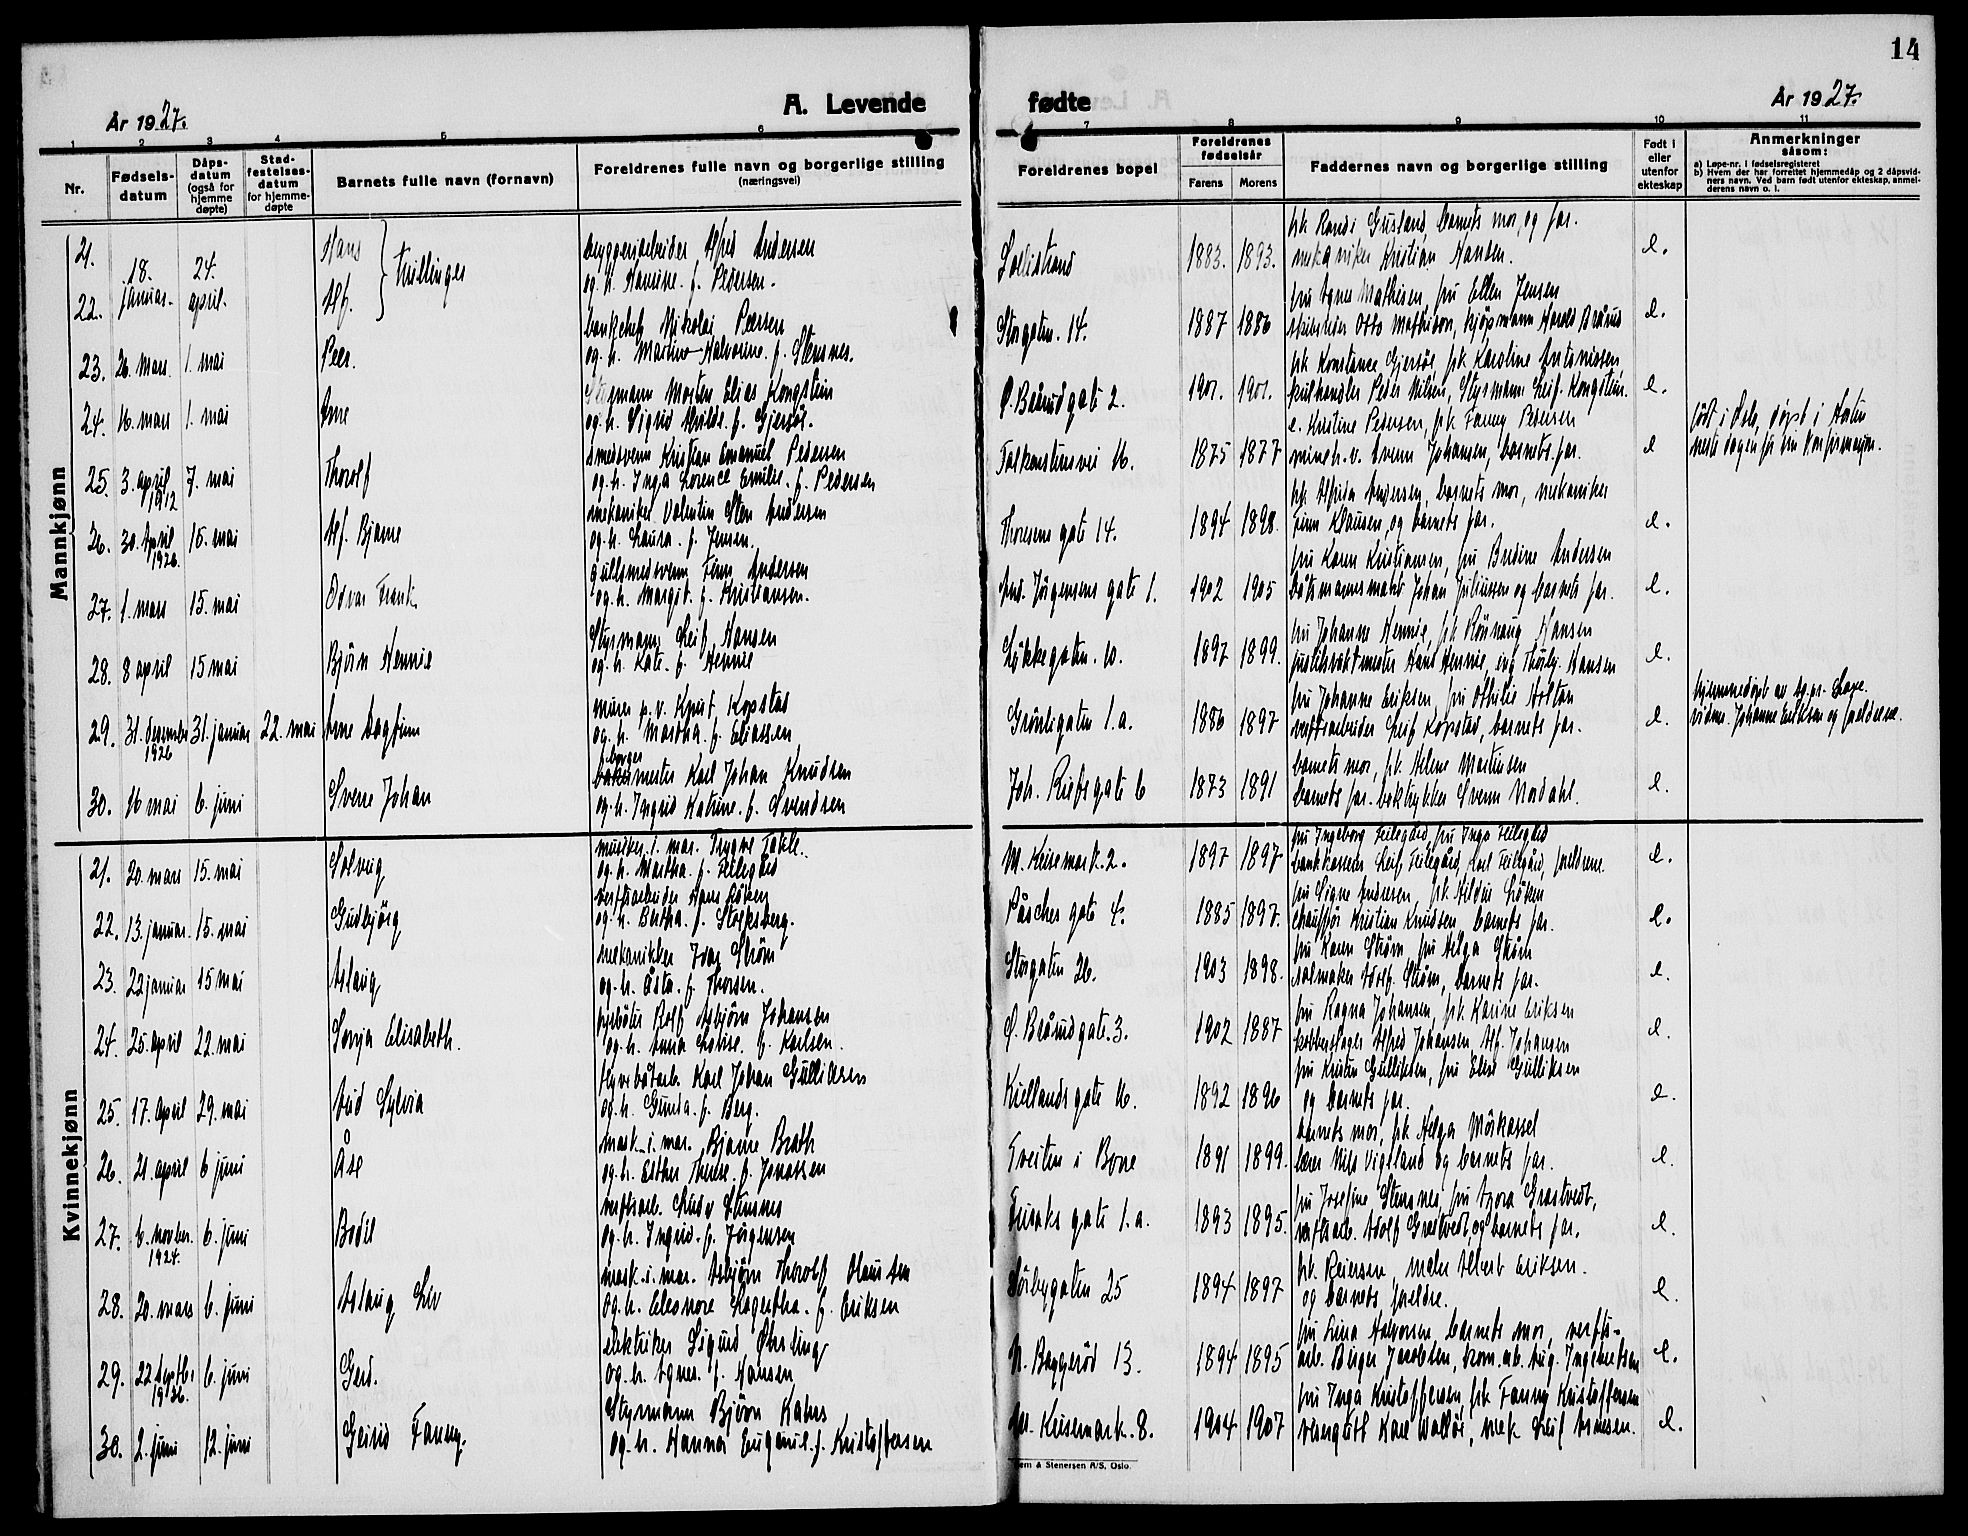 14
År 1927.
A. Levende
fødte
År 1927.
1 2 3 4 5 6 7 8 9 10 11
Nr.
Fødsels-
datum
Dåps-
datum
(også for
hjemme
døpte)
Stad-
festelses-
datum
for hjemme-
døpte
Barnets fulle navn (fornavn)
Foreldrenes fulle navn og borgerlige stilling
(næringsvei)
Foreldrenes bopel
Foreldrenes
fødselsår
Farens Morens
Faddernes navn og borgerlige stilling
Født i
eller
utenfor
ekteskap
Anmerkninger
såsom:
a) Løpe-nr. i fødselsregisteret
b) Hvem der har forrettet hjemmedåp og 2 dåpsvid-
ners navn. Ved barn født utenfor ekteskap, anmel-
derens navn o. l.
Mannkjønn
21. 18. januar. 24. april. Hans } Tvillinger
Alf Andersen
og h. f. Pedersen.
1883. 1893.
barnets mor, og far.
mekaniker Kristian Hansen.
e.
22. Alf.
23. 26. mars. 1. mai Peer.
Nikolai Peersen
og h. Martine Halvorine. f. Stensnes.
Storgaten. 14. 1887 1886
fru Agnes Mathisen, fru Ellen Jensen
Otto Mathison, kjøpmann Harald Brårud
e.
24. 16. mars 1. mai Arne
Styrmann Morten Elias Kongstein
og h. Sigrid f. Gjersøe.
Ø. Brårudgate 2. 1901. 1901.
frk Konstanse Gjersøe, frk Karoline Antonissen
Peder Nilsen, Styrmann Leif Kongstein.
e.
25. 3. april 1912 7. mai Thorolf
smedsvenn Kristian Emanuel Pedersen
og h. Inga Lorence Emilie. f. Pedersen
Falkenstensvei 16. 1875 1877
e. Kristine Pedersen, frk Fanny Pedersen
Svenn Johansen, barnets far.
e
født i Oslo, døpt i Horten
26. 30. April 1926. 15. mai Alf. Bjarne
mekaniker Valentin Sten Andersen
og h. Laura. f. Jensen.
Thoresens gate 14. 1894 1898.
frk Alfrida Andersen, barnets mor, mekaniker
Finn Clausen, og barnets far.
e.
27. 1. mars 15. mai Odvar Frank.
gullsmedsvenn Finn Andersen
og h. Margit. f. Kristiansen.
And. Jørgensens gate 1. 1902 1905
fru Karen Kristiansen, fru Andersen
båtsmannsmat Johan Juliussen og barnets far.
e.
28. 8 april 15 mai Bjørn Hennie
Styrmann Leif Hansen
og h. Kate. f. Hennie
Løkkegaten. 10. 1897 1899.
fru Johanne Hennie, frk Rønnaug Hansen
Hans Hennie, ing Thorbj. Hansen
e.
29. 31. desember 1926 31. januar 22. mai Arne Dagfinn
murer p. v. Knut Kopstad
og h. Martha. f. Eliassen
Grønligaten 1. a. 1886 1897
fru Johanne Eriksen, fru Othilie Holtan
verftsarbeider Leif Kopstad, barnets far.
e.
hjemmedøpt av
vidner. Johanne Eriksen og foreldrene.
30. 16 mai 6. juni Svenn Johan
mester Karl Johan Knudsen
og h. Ingrid Katrine. f. Svendsen
Joh. Riefs gate 6 1873 1891
barnets mor, frk. Helene Martinsen
barnets far. boktrykker Svenn Nordahl.
e.
Kvinnekjønn
21. 20. mars 15. mai Solveig
musiker i mar. Trygve
og h. Martha. f. Feilegård
M. Keisemark. 2. 1897 1897
fru Ingeborg Feilegård, fru Inga Feilegård
bankkasserer Leif Feilegård, Karl Feilgård, foreldrene.
e.
22. 13. januar. 15. mai Gudbjørg
verftsarbeider Hans Løken
og h. Bertha. f. Storksberg.
Påsches gate 4. 1885 1897.
fru Signe Andersen, frk Hildur Løken
chauffør Kristian Knudsen barnets far.
e.
23. 22 januar 15 mai Aslaug
mekanikker Ivar Strøm
og h. Åsta. f. Thorsen.
Storgaten 26. 1903 1898.
fru Karen Strøm fru Helga Strøm
salmaker Adolf Strøm, barnets far.
e.
24. 25. april 22. mai Sonja Elisabeth.
fyrbøter Rolf Asbjørn Johansen
og h. Anna Lovise. f. Karlsen.
Ø. Brårudgate. 3. 1902 1887
fru Ragna Johansen, frk Karine Eriksen
kobberslager Alfred Johansen, Alf. Johansen
e.
25. 17. April 29. mai Aud Sylvia
flyvebåtarb. Karl Johan Gulliksen
og h. Gunda. f. Berg.
Kiellands gate 16. 1892 1896
fru Kristin Gulliksen, fru Elise Gulliksen
og barnets far.
e.
26. 21. april 6 juni Åse
mask. i. mar. Bjarne Brath
og h. Esther Therese. f. Jonassen
Tveiten i Borre 1891 1899.
barnets mor, frk Helga Mörkassel
lærer Nils Vigeland og barnets far.
e.
27. 6. novber. 1924. 6. juni Bodil
verftsarb. Ludv Stensnes
og h. Ingrid. f. Jørgensen
gate 1. a. 1893 1895.
fru Josefine Stensnes, fru Thora Grostvedt,
verftsarb. Adolf Grostvedt, og barnets far.
e.
28. 20. mars 6. juni Aslaug Liv
mask. i. mar. Asbjørn Thorolf
og h. Eleonore Hagertha. f. Eriksen
Sørbygaten 25 1894 1897
frk. Reiersen, maler Albert Eriksen.
og barnets foreldre.
e.
29. 22 septbr 1926. 6. juni Gerd.
elektriker Sigurd
og h. Agnes. f. Hansen
N. Baggerød 13. 1894 1895
fru Lina Halvorsen, barnets mor, verfts-
arb. Birger Jacobsen, kom. arb. Aug. Ingebretsen
e.
30. 2. juni 12. juni Geirid Fanny.
Styrmann Bjørn
og h. Hanna Eugenie. f. Kristoffersen
Keisemark. 8. 1904 1907
fru Inga Kristoffersen, frk Fanny Kristoffersen
Karl Walløe, mek Leif Arnesen.
e.
Stenersen A/S, Oslo.